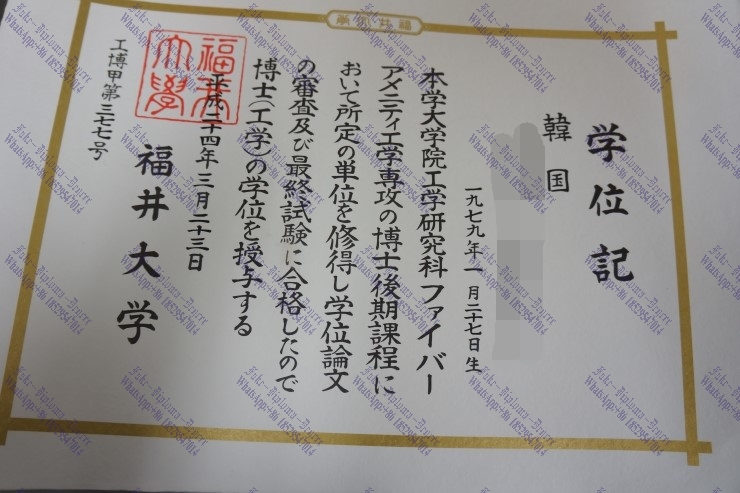 学位記
韓国
一九七九年一月二七日生
本学大学院工学研究科ファイバー
アメニティ工学専攻の博士後期課程に
おいて所定の単位を修得し学位論文
の審査及び最終試験に合格したので
博士(工学)の学位を授与する
平成二十四年三月二十三日
福井大学
福井大學
工博甲第三七七号